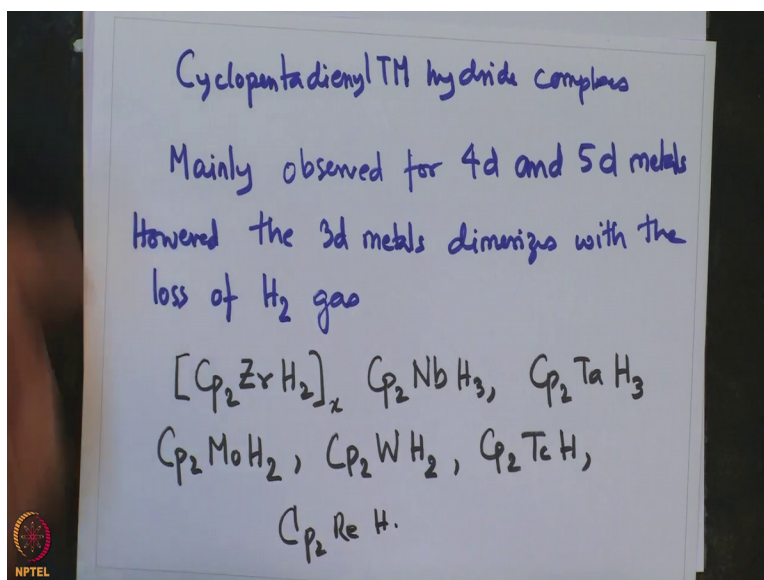 Cyclopentadienyl TM hydride complexes
Mainly observed for 4d and 5d metals
Howered the 3d metals dimerizes with the
loss of H₂ gas
[Cp₂ZrH₂]ₓ Cp₂NbH₃, Cp₂TaH₃
Cp₂MoH₂, Cp₂WH₂, Cp₂TcH,
Cp₂ReH.
NPTEL